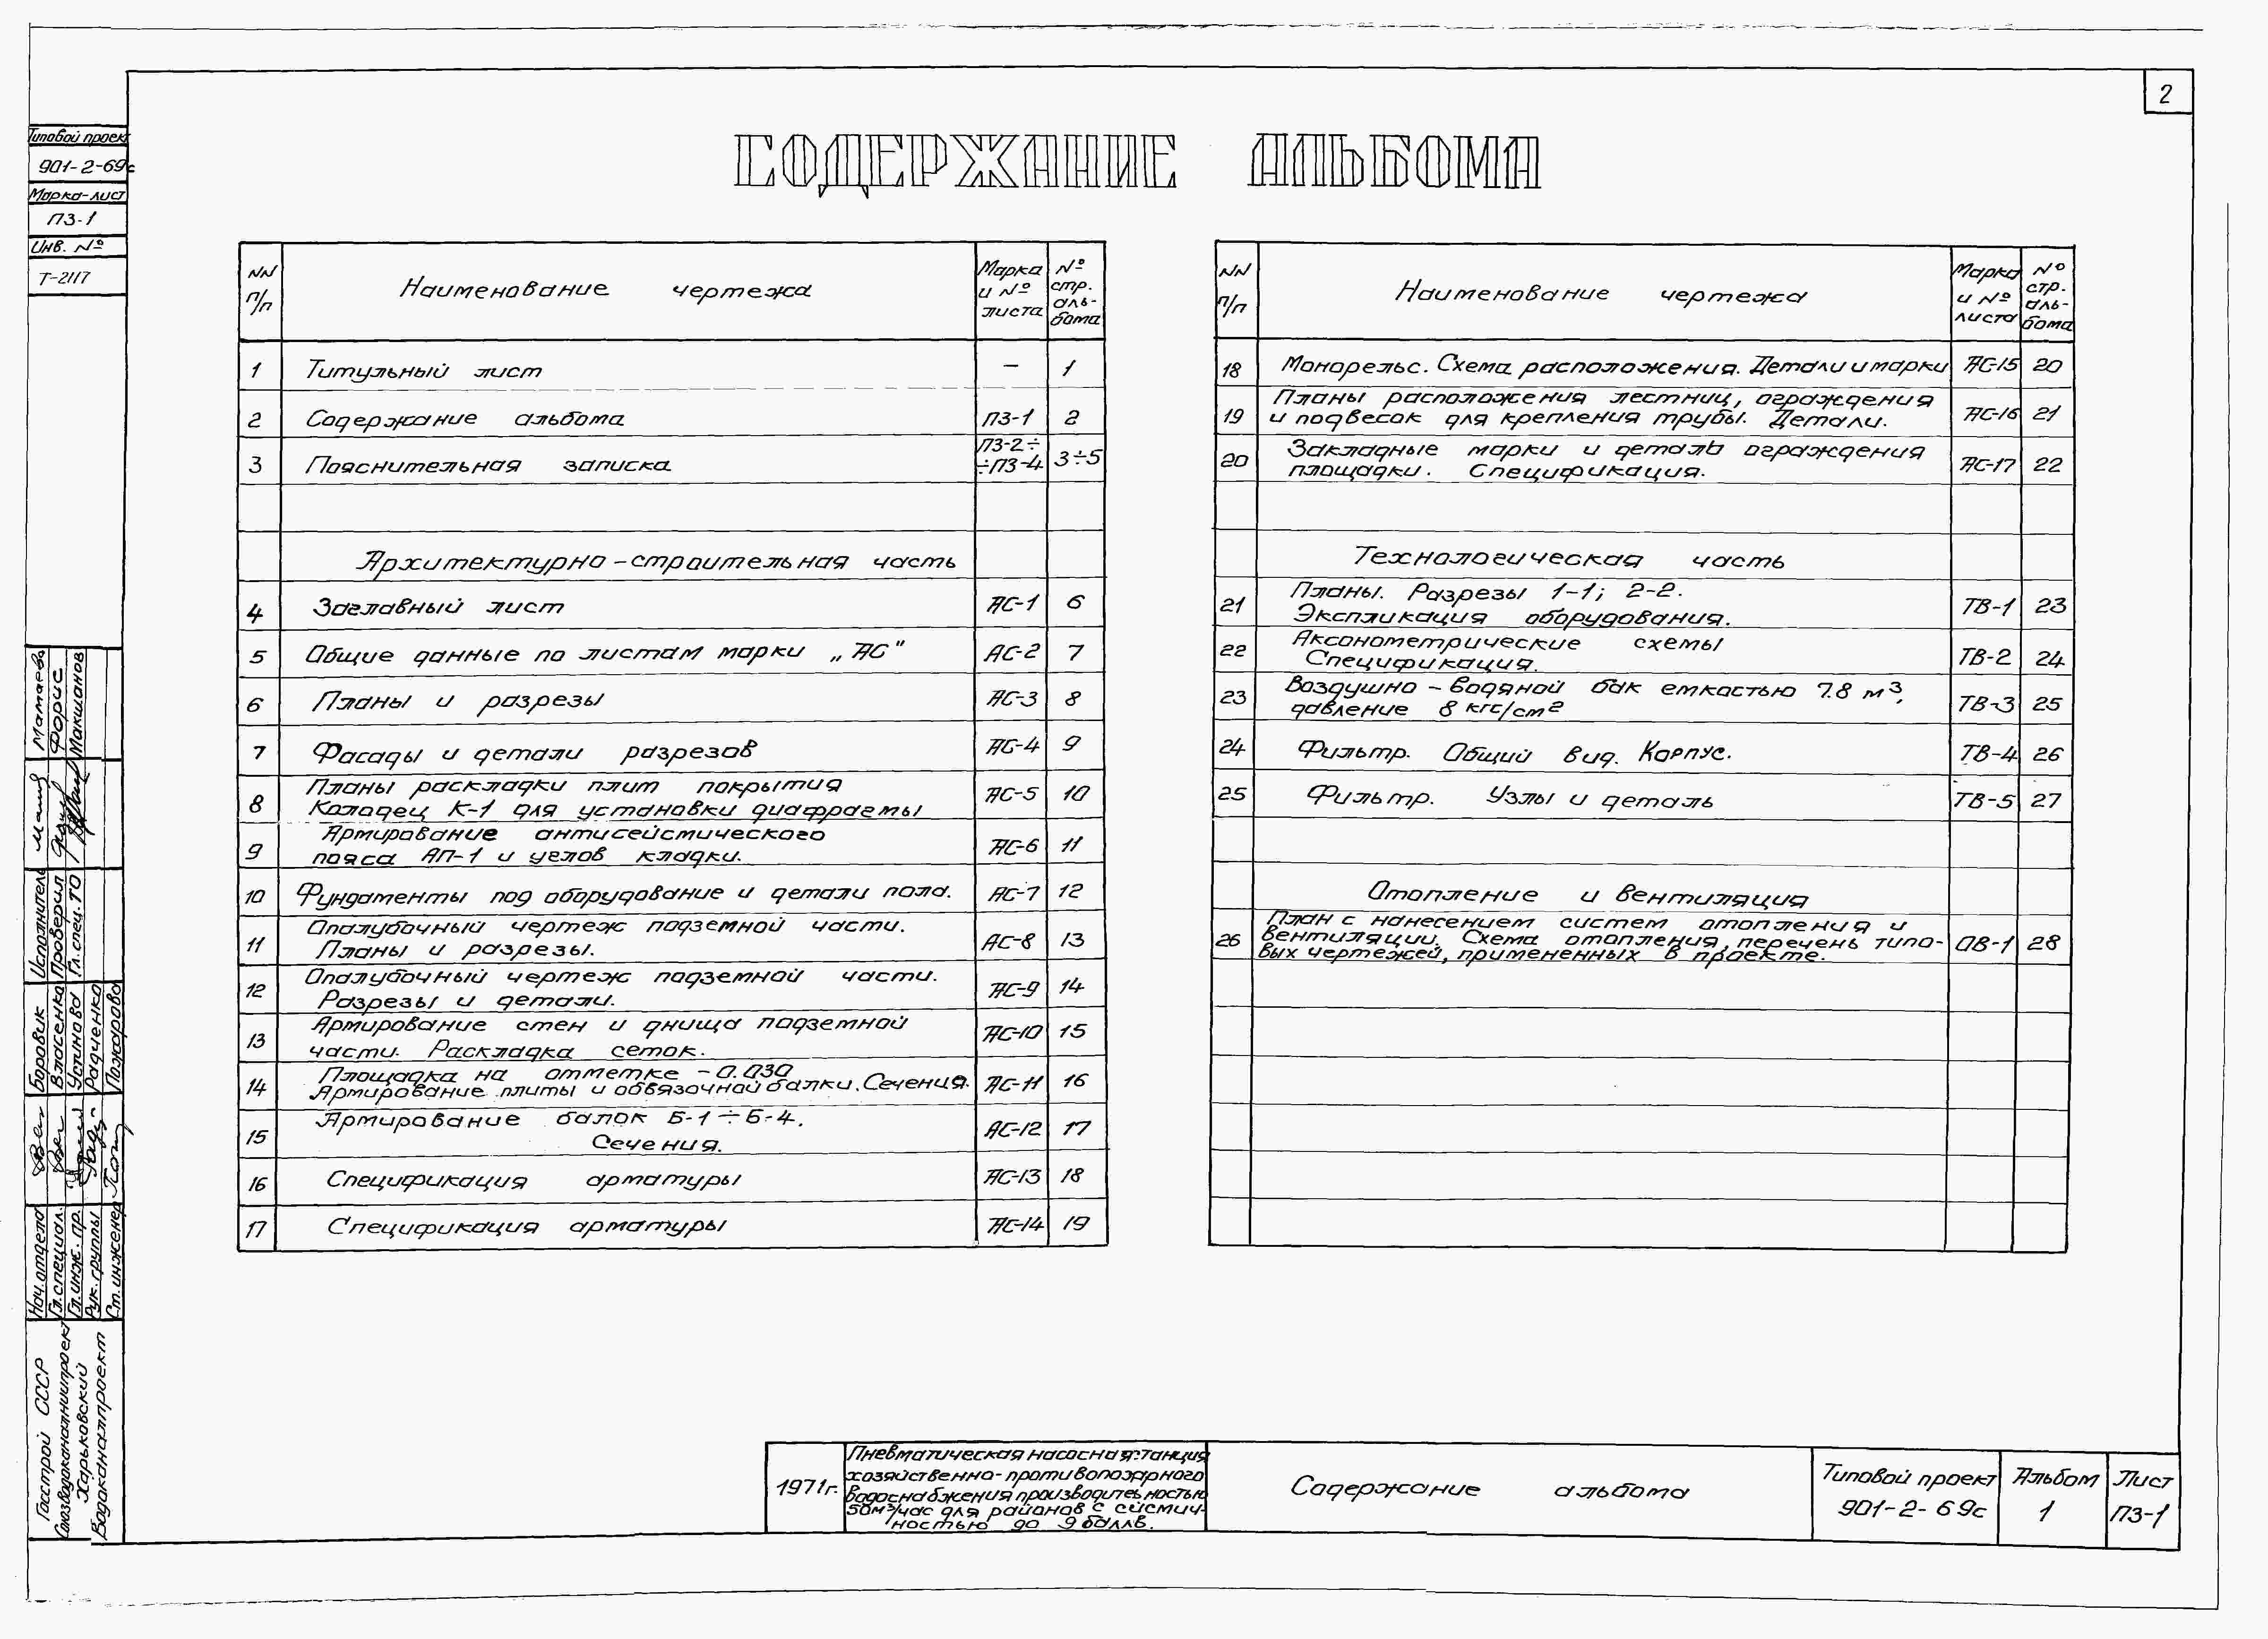 2
Типовой проект
901-2-69с
Марка-лист
ПЗ-1
Инв. №
Т-2117
СОДЕРЖАНИЕ АЛЬБОМА
NN п/п
Наименование чертежа
Марка и № листа
№ стр. аль-бома
1 Титульный лист — 1
2 Содержание альбома ПЗ-1 2
3 Пояснительная записка ПЗ-2÷ ÷ПЗ-4 3÷5
Архитектурно-строительная часть
4 Заглавный лист АС-1 6
5 Общие данные по листам марки „АС" АС-2 7
6 Планы и разрезы АС-3 8
7 Фасады и детали разрезов АС-4 9
8 Планы раскладки плит покрытия
Колодец К-1 для установки диафрагмы АС-5 10
9 Армирование антисейсмического
пояса АП-1 и углов кладки. АС-6 11
10 Фундаменты под оборудование и детали пола. АС-7 12
11 Опалубочный чертеж подземной части.
Планы и разрезы. АС-8 13
12 Опалубочный чертеж подземной части.
Разрезы и детали. АС-9 14
13 Армирование стен и днища подземной
части. Раскладка сеток. АС-10 15
14 Площадка на отметке -0.030
Армирование плиты и обвязочной балки. Сечения. АС-11 16
15 Армирование балок Б-1÷Б-4.
Сечения. АС-12 17
16 Спецификация арматуры АС-13 18
17 Спецификация арматуры АС-14 19
NN п/п
Наименование чертежа
Марка и № листа
№ стр. аль-бома
18 Монорельс. Схема расположения. Детали и марки АС-15 20
19 Планы расположения лестниц, ограждения
и подвесок для крепления трубы. Детали. АС-16 21
20 Закладные марки и деталь ограждения
площадки. Спецификация. АС-17 22
Технологическая часть
21 Планы. Разрезы 1-1; 2-2.
Экспликация оборудования. ТВ-1 23
22 Аксонометрические схемы
Спецификация. ТВ-2 24
23 Воздушно-водяной бак емкостью 7.8 м³,
давление 8 кгс/см² ТВ-3 25
24 Фильтр. Общий вид. Корпус. ТВ-4 26
25 Фильтр. Узлы и деталь ТВ-5 27
Отопление и вентиляция
26 План с нанесением систем отопления и
вентиляции. Схема отопления, перечень типо-
вых чертежей, примененных в проекте. ОВ-1 28
Мамаева
Форис
Макшанов
Исполнитель
Проверил
Гл.спец.ТО
Боровик
Власенко
Устинова
Радченко
Пожарова
Нач.отдела
Гл.специал.
Гл.инж.пр.
Рук.группы
Ст.инженер
Госстрой СССР
Союзводоканалниипроект
Харьковский
Водоканалпроект
1971г.
Пневматическая насосная станция
хозяйственно-противопожарного
водоснабжения производительностью
50м³/час для районов с сейсмич-
ностью до 9 баллв.
Содержание альбома
Типовой проект
901-2-69с
Альбом
1
Лист
ПЗ-1